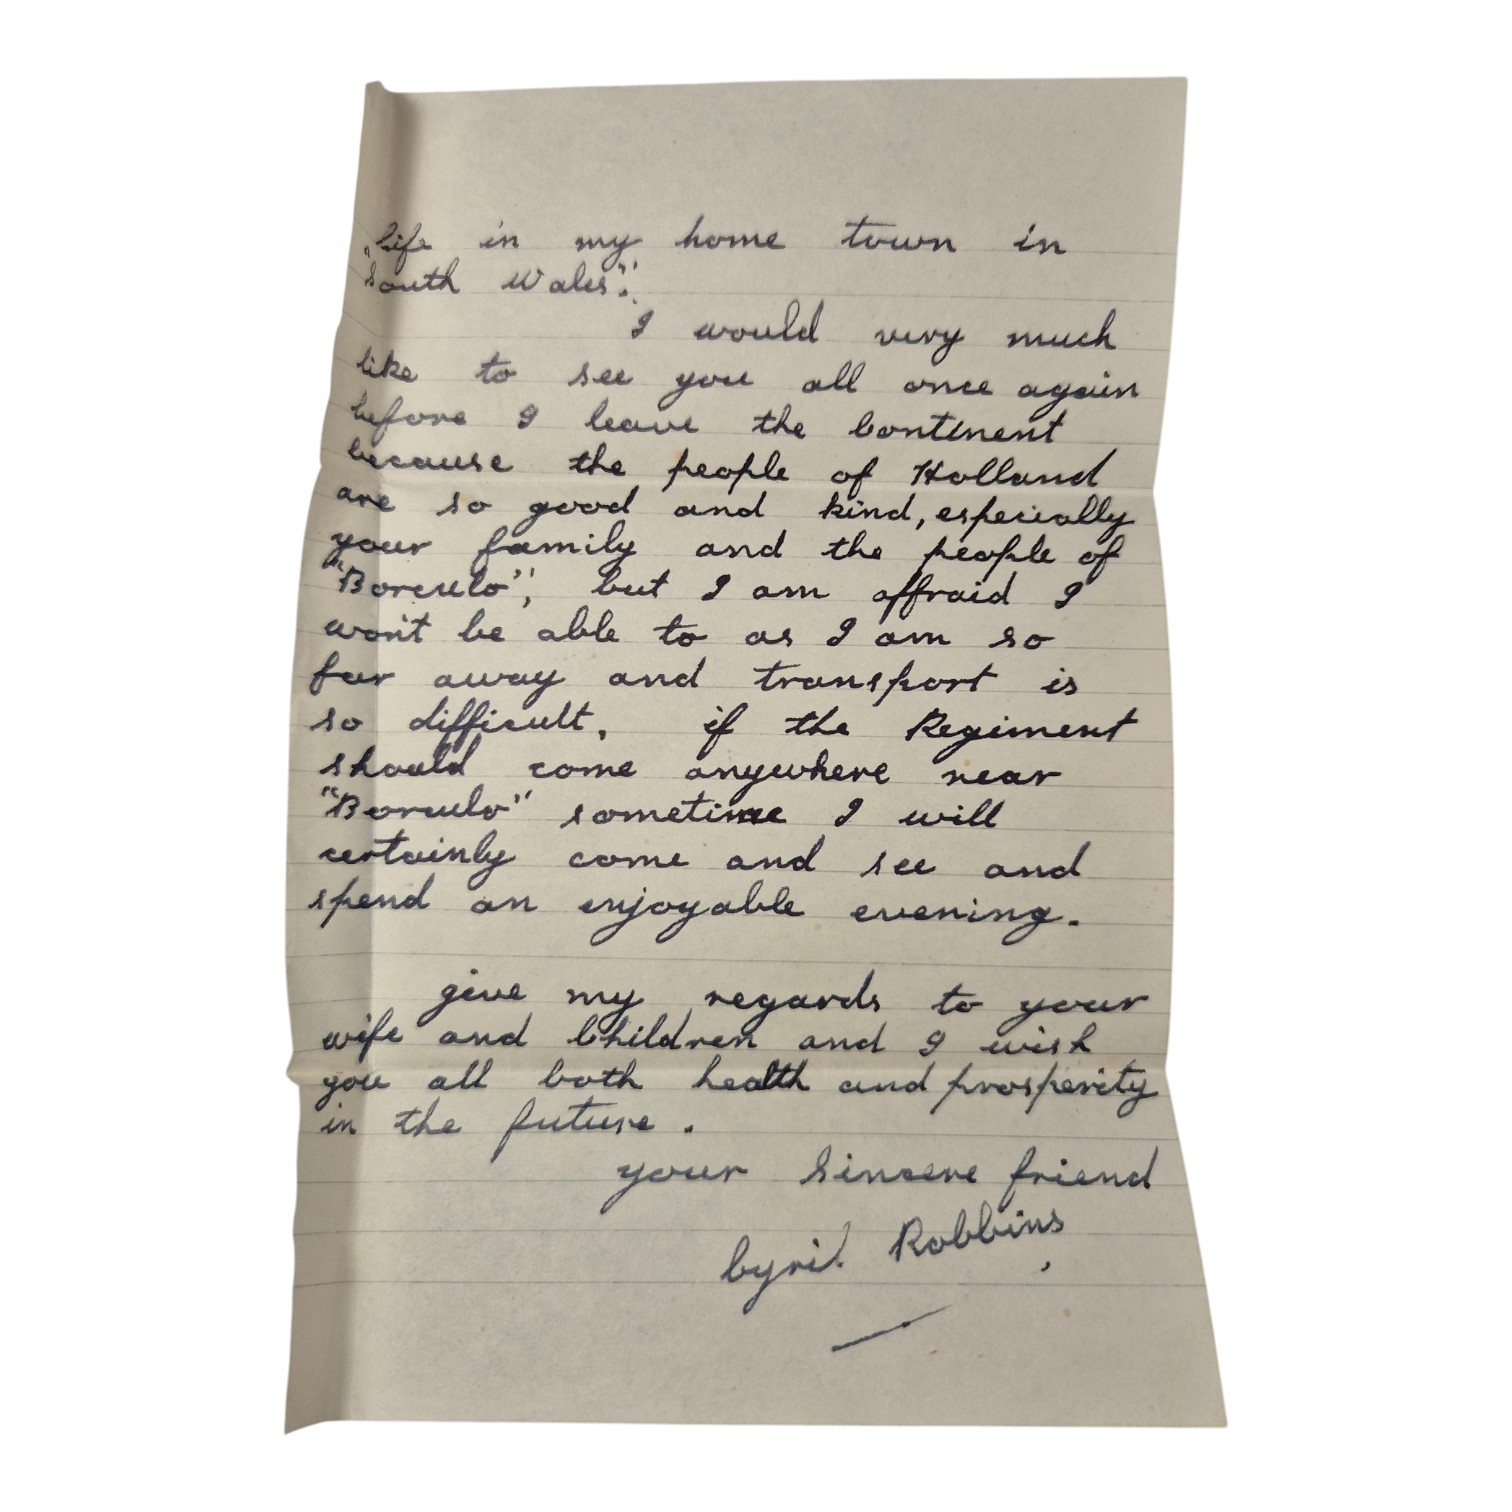 life in my home town in
"South Wales".
I would very much
like to see you all once again
before I leave the Continent
because the people of Holland
are so good and kind, especially
your family and the people of
"Borculo", but I am affraid I
won't be able to as I am so
far away and transport is
so difficult, if the Regiment
should come anywhere near
"Borculo" sometime I will
certainly come and see and
spend an enjoyable evening.
give my regards to your
wife and Children and I wish
you all both health and prosperity
in the future.
your Sincere friend
Cyril Robbins,